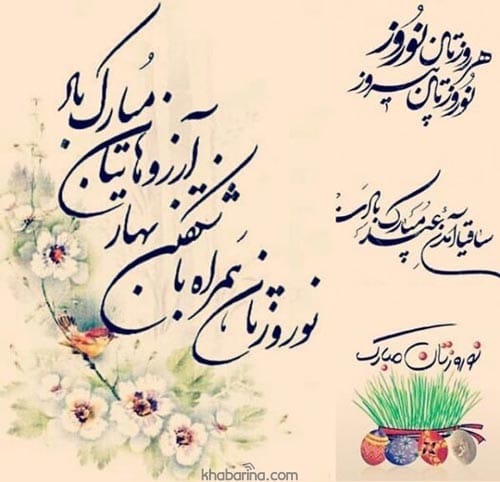 هر روزتان نوروز
نوروزتان پیروز
ساقیا آمدن عید مبارک بادت
نوروزتان مبارک
نوروزتان همراه با
شکفتن بهار
آرزوهایتان
مبارک باد
khabarina.com